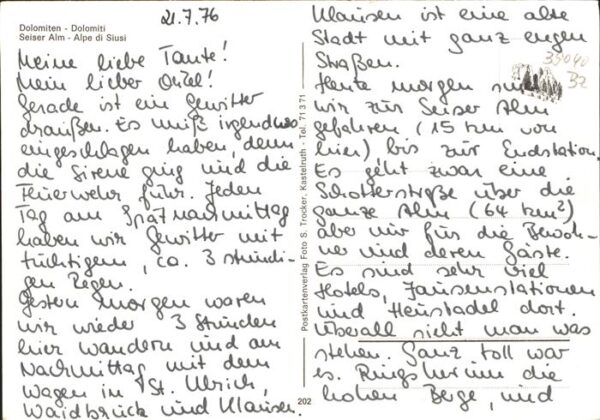 21.7.76
Dolomiten - Dolomiti
Seiser Alm - Alpe di Siusi
Meine liebe Tante!
Mein lieber Onkel!
Gerade ist ein Gewitter
draußen. Es muß irgendwo
eingeschlagen haben, denn
die Sirene ging und die
Feuerwehr fuhr. Jeden
Tag am Spätnachmittag
haben wir Gewitter mit
tüchtigem, ca. 3 stündi-
gen Regen.
Gestern morgen waren
wir wieder 3 Stunden
hier wandern und am
Nachmittag mit dem
Wagen in St. Ulrich,
Waidbruck und Klausen.
Postkartenverlag Foto S. Trocker, Kastelruth - Tel. 71371
202
Klausen ist eine alte
Stadt mit ganz engen
Straßen.
Heute morgen sind
wir zur Seiser Alm
gefahren (15 km von
hier) bis zur Endstation.
Es geht zwar eine
Schotterstraße über die
ganze Alm (64 km²)
aber nur für die Bewoh-
ner und deren Gäste.
Es sind sehr viel
Hotels, Jausenstationen
und Heustadel dort.
Überall sieht man was
stehen. Ganz toll war
es. Ringsherum die
hohen Berge, und